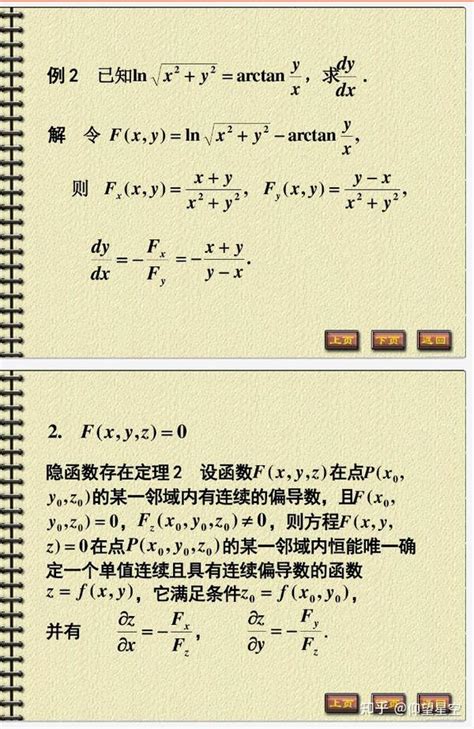 例2 已知ln√(x²+y²)=arctan y/x，求dy/dx.
解 令 F(x,y)=ln√(x²+y²)−arctan y/x,
则 Fₓ(x,y)=(x+y)/(x²+y²), F_y(x,y)=(y−x)/(x²+y²),
dy/dx=−Fₓ/F_y=−(x+y)/(y−x).
上页 下页 返回
2. F(x,y,z)=0
隐函数存在定理2 设函数F(x,y,z)在点P(x₀,
y₀,z₀)的某一邻域内有连续的偏导数，且F(x₀,
y₀,z₀)=0，F_z(x₀,y₀,z₀)≠0，则方程F(x,y,
z)=0在点P(x₀,y₀,z₀)的某一邻域内恒能唯一确
定一个单值连续且具有连续偏导数的函数
z=f(x,y)，它满足条件z₀=f(x₀,y₀)，
并有 ∂z/∂x=−Fₓ/F_z， ∂z/∂y=−F_y/F_z.
上页 返回
知乎 @仰望星空